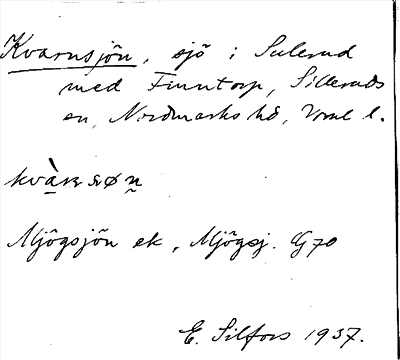 Kvarnsjön, sjö i Sulerud
med Finntorp, Silleruds
sn, Nordmarks hd, Vrml l.
Mjögsjön ek, Mjögsj. G70
E. Silfors 1937.